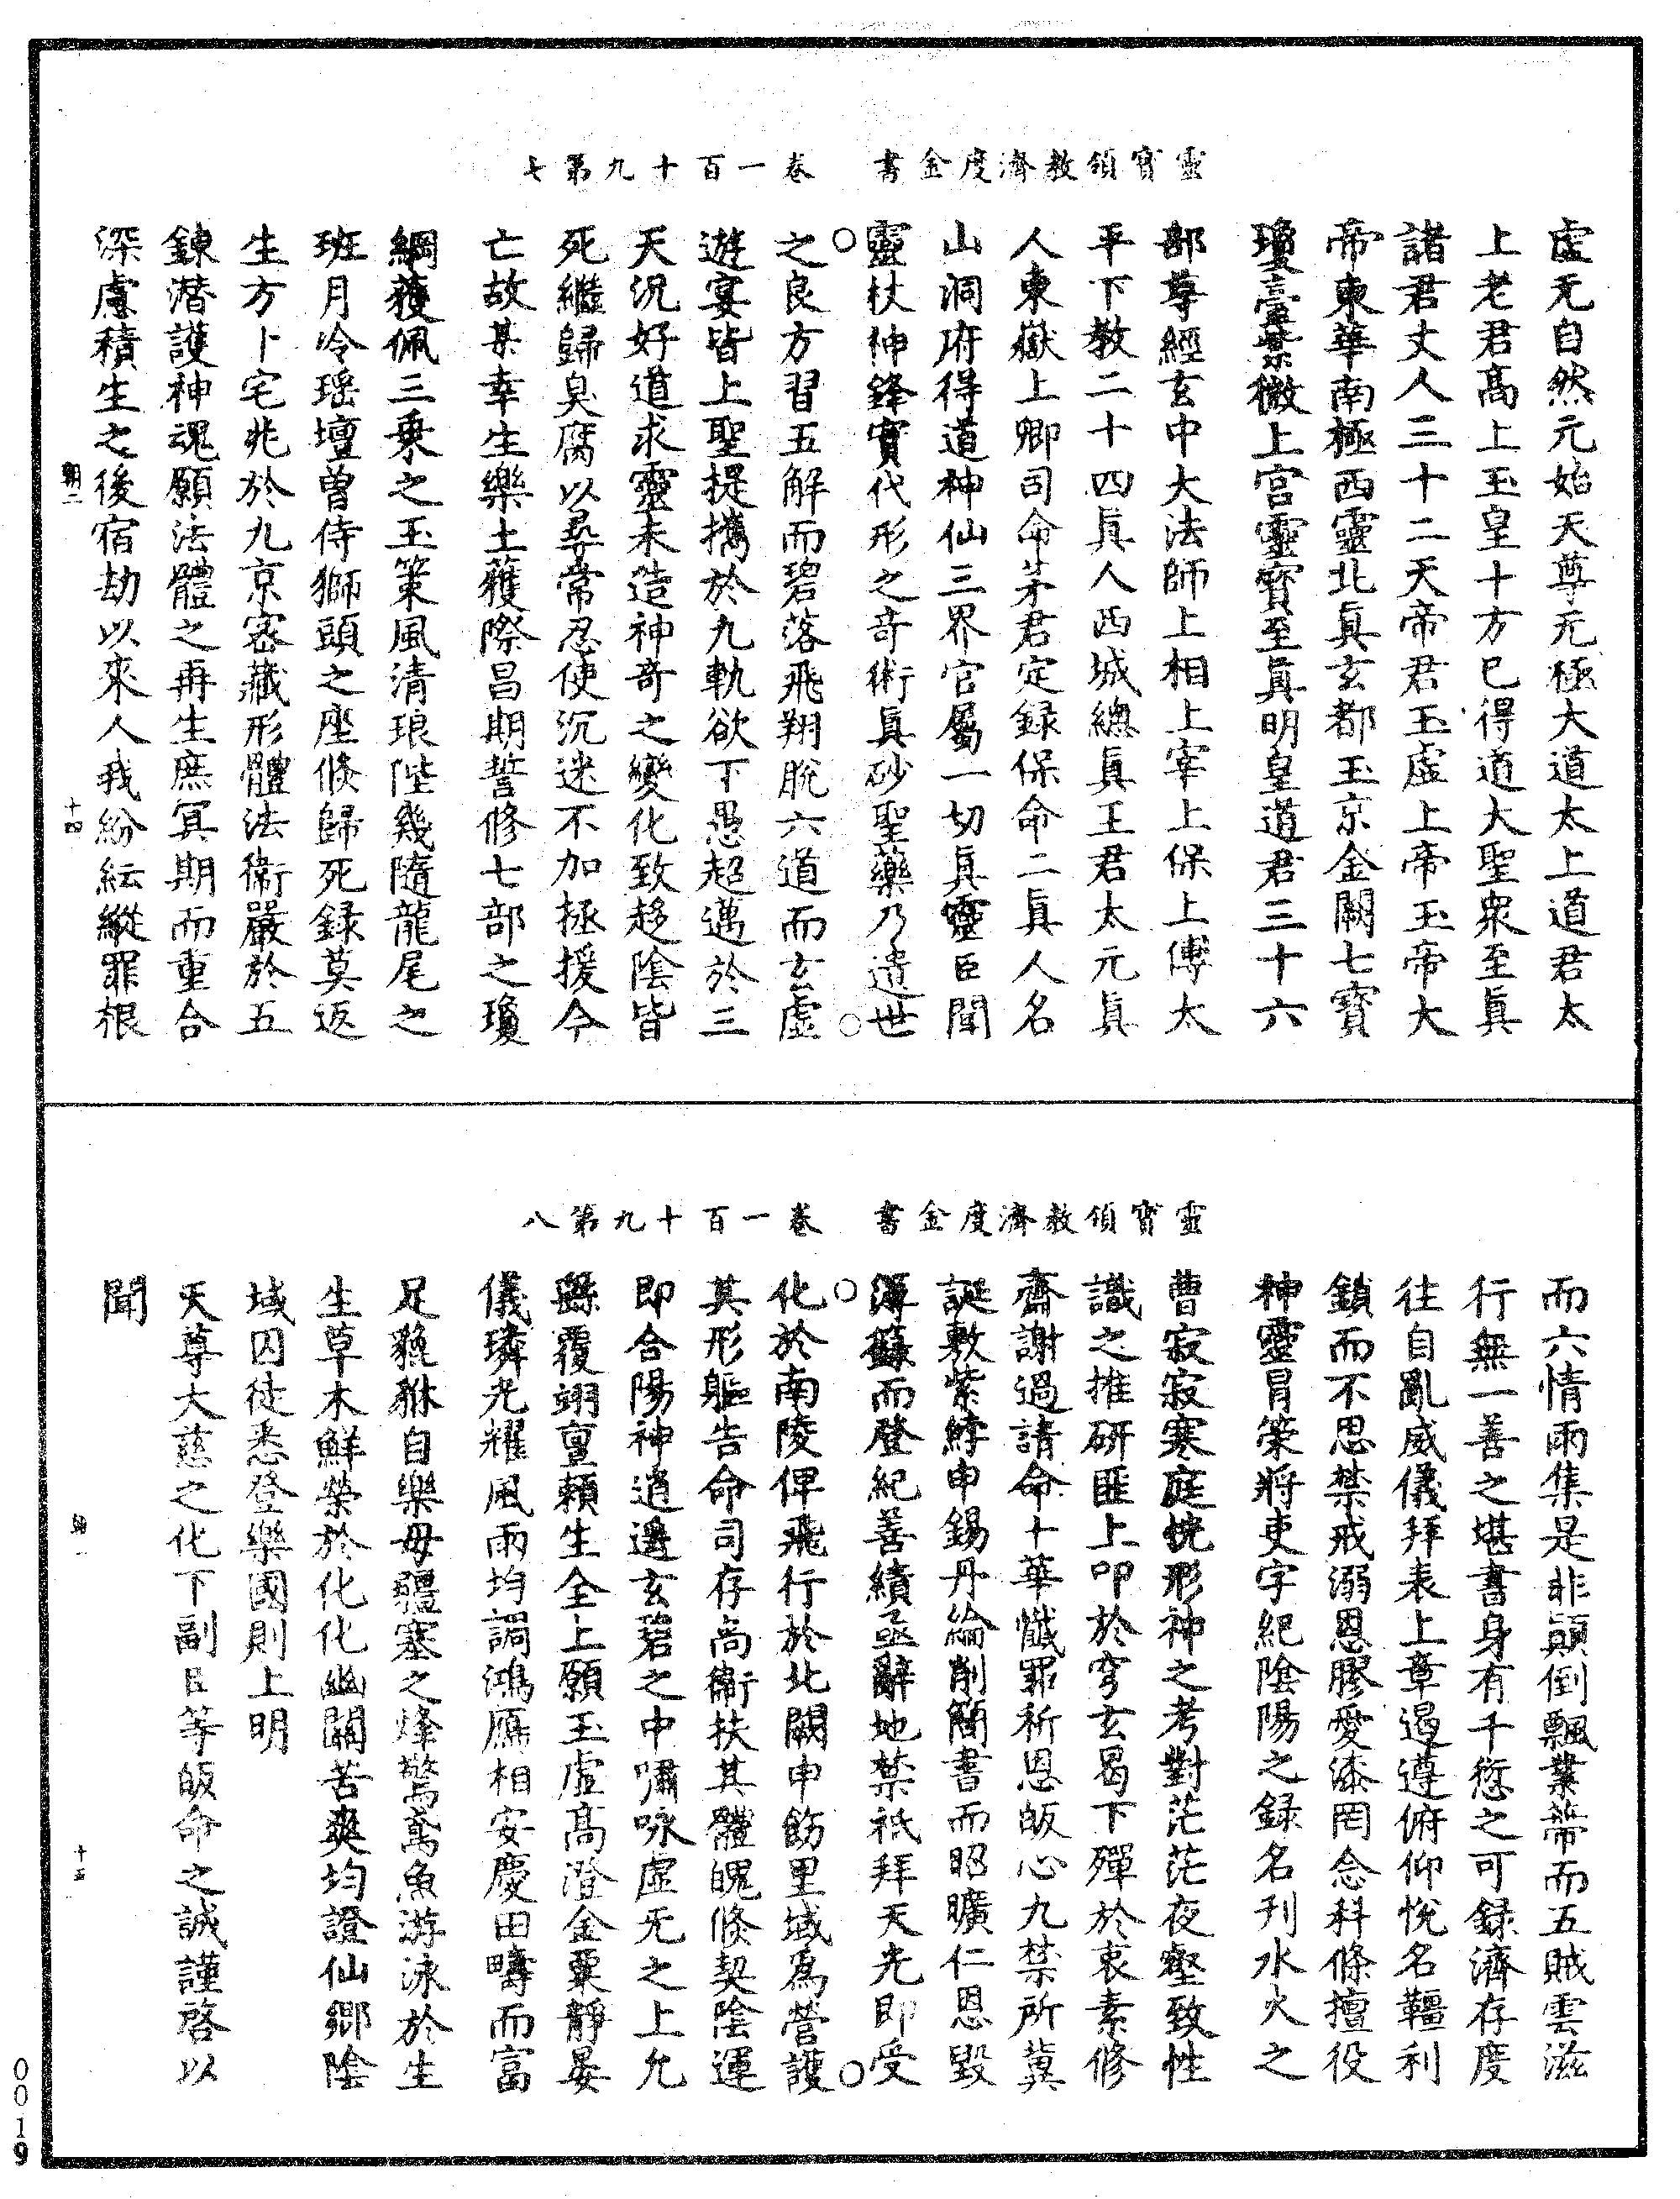 靈寶領教濟度金書　卷一百十九第七
虛无自然元始天尊元極大道太上道君太
上老君高上玉皇十方已得道大聖衆至眞
諸君丈人三十二天帝君玉虛上帝玉帝大
帝東華南極西靈北眞玄都玉京金闕七寶
瓊臺紫微上宮靈寶至眞明皇道君三十六
部尊經玄中大法師上相上宰上保上傅太
平下教二十四眞人西城總眞王君太元眞
人東嶽上卿司命茅君定錄保命二眞人名
山洞府得道神仙三界官屬一切眞靈臣聞
靈杖神鋒實代形之奇術眞砂聖藥乃遺世
之良方習五解而碧落飛翔脫六道而玄虛
遊宴皆上聖提攜於九軌欲下愚超邁於三
天況好道求靈未造神奇之變化致趍陰皆
死繼歸臭腐以尋常忍使沉迷不加拯援今
亡故某幸生樂土獲際昌期誓修七部之瓊
綱獲佩三乗之玉策風清琅陛幾隨龍尾之
班月冷瑶壇曽侍獅頭之座倐歸死録莫返
生方卜宅兆於九京宻藏形體法衞嚴於五
鍊潜護神魂願法體之再生庶冥期而重合
深慮積生之後宿劫以來人我紛紜縱罪根
朝二　十四
靈寶領教濟度金書　卷一百十九第八
而六情雨集是非顚倒飄業蔕而五賊雲滋
行無一善之堪書身有千愆之可録濟存度
往自亂威儀拜表上章遏遵俯仰恱名韁利
鎖而不思禁戒溺恩膠愛漆罔念科條擅役
神靈冒榮將吏字紀陰陽之録名刋水火之
曹寂寂寒庭恍形神之考對茫茫夜壑致性
識之推研匪上叩於穹玄曷下殫於衷素修
齋謝過請命十華懺罪祈恩皈心九禁所冀
誕敷紫綍申錫丹綸削簡書而昭曠仁恩毀
簿籙而登紀善績亟辭地禁祇拜天光即受
化於南陵俾飛行於北闕申飭里域爲營護
其形軀告命司存啇衞扶其體魄倐契陰運
即合陽神逍遥玄碧之中嘯咏虛无之上允
繇覆翊亶賴生全上願玉虛髙澄金粟靜晏
儀璘光耀風雨均調鴻鴈相安慶田疇而富
足貔貅自樂毋疆塞之烽驚鳶魚游泳於生
生草木鮮榮於化化幽關苦爽均證仙鄉陰
域囚徒悉登樂國則上明
天尊大慈之化下副臣等皈命之誠謹啓以
聞
十五
0019